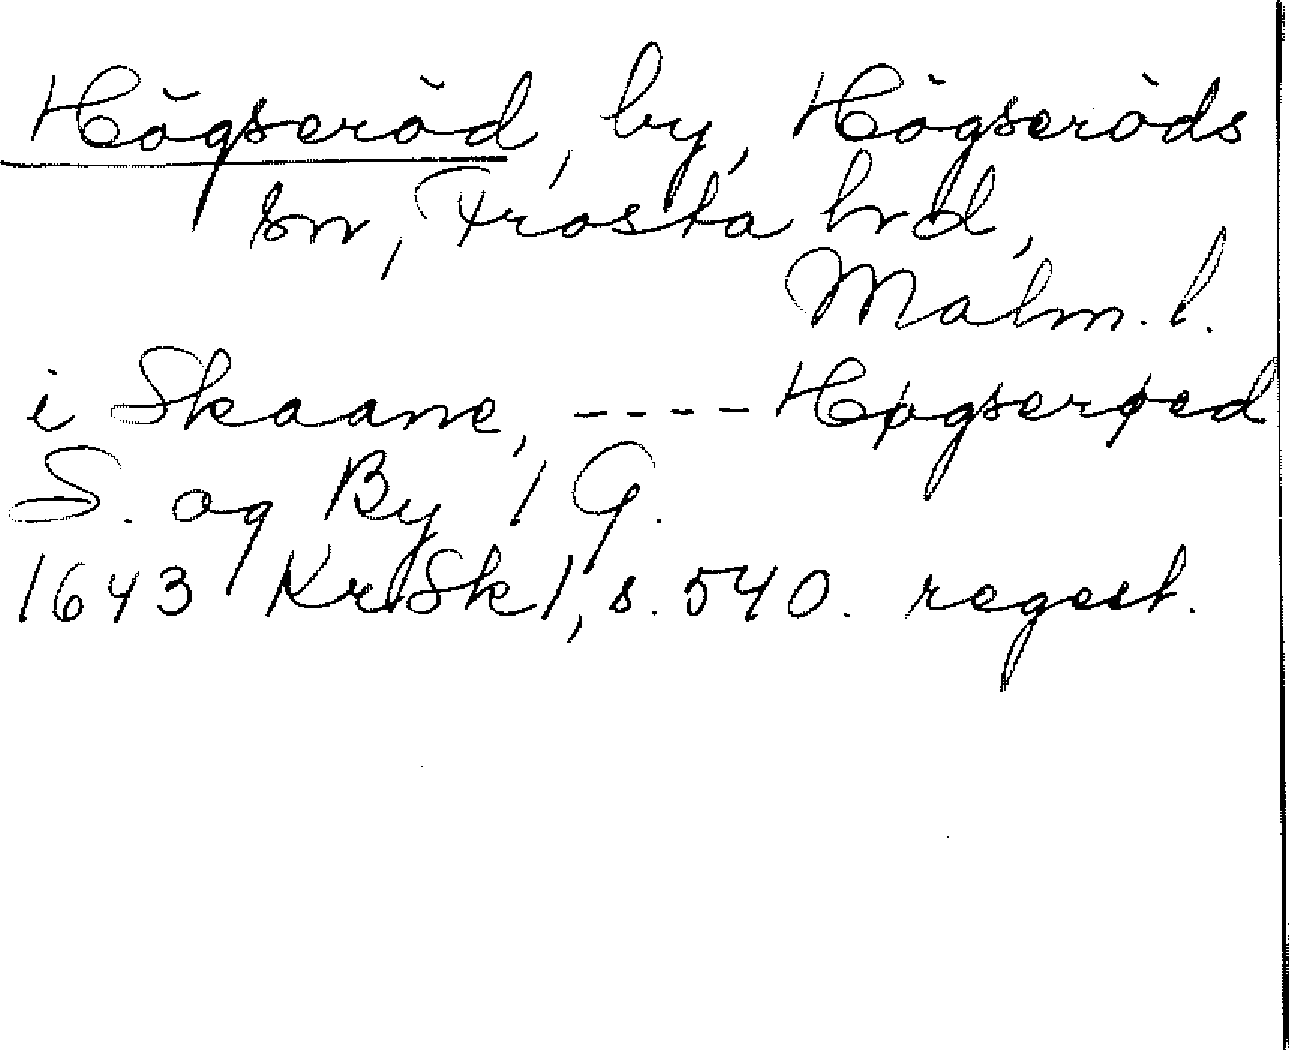 Högseröd, by, Högseröds
sn, Frosta hrd,
Malm. l.
i Skaane, ---- Høgserøed
S. og By 1 G.
1643 KrSk 1, s. 540. regest.